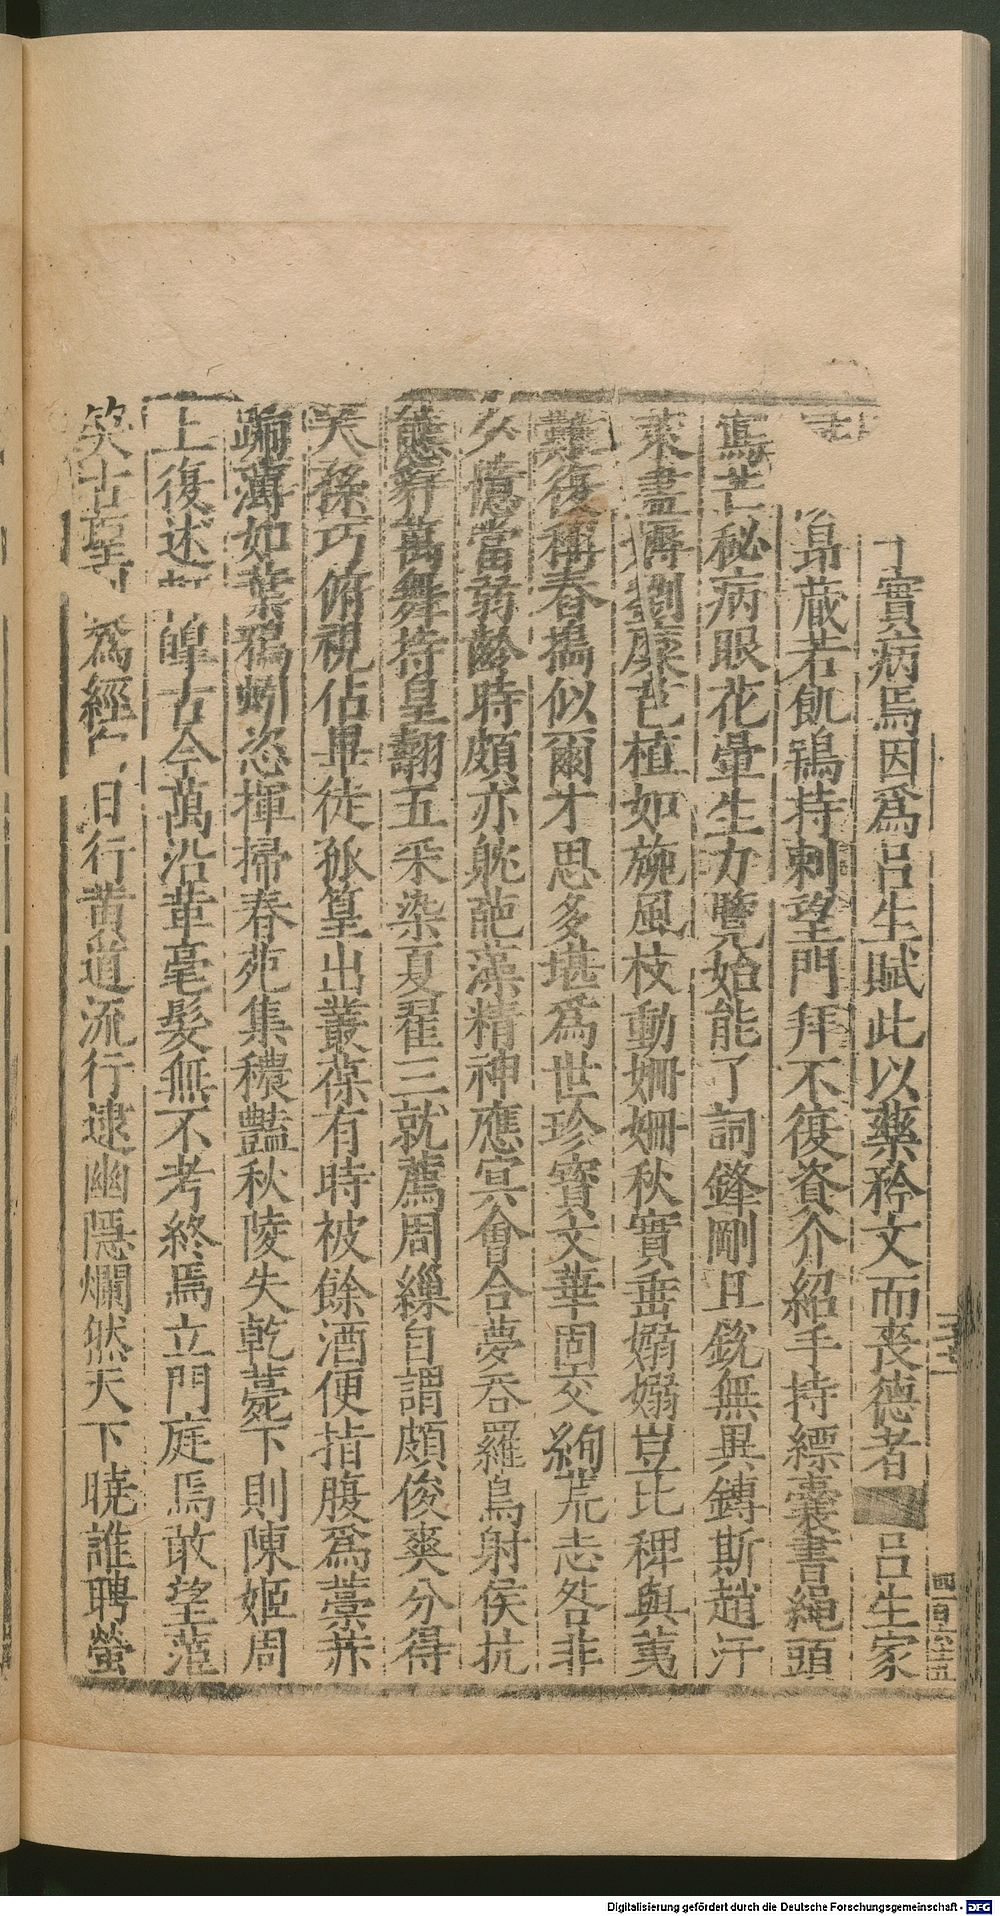 實病焉因爲呂生賦此以藥矜文而喪德者 呂生家
昂藏若飢鴻持刺望門拜不復資介紹手持縹囊書繩頭
寫芒秘病眼花暈生力覽始能了詞鋒剛且銳無異鏄斯趙汗
萊盡劚穈芑植如旆風枝動姍姍秋實垂嫋嫋豈比稗與荑
難復稱春擣似爾才思多堪爲世珍寶文華固交絢荒志咎非
久憶當弱齡時頗亦眺葩藻精神應冥會合夢吞羅鳥射侯抗
舞萬舞持皇翿五采染夏翟三就薦周繅自謂頗俊爽分得
天孫巧俯視佔畢徒孤篁出叢葆有時被餘酒便指腹爲藁恭
蹁薄如葉鴉蚓恣揮掃春苑集穠豔秋陵失乾薧下則陳姬周
上復述 皥古今萬沿革毫髮無不考終焉立門庭焉敢望蒞
笑古 爲經 日行黃道流行逮幽隱爛然天下曉誰聘螢
四百六十五
Digitalisierung gefördert durch die Deutsche Forschungsgemeinschaft - DFG